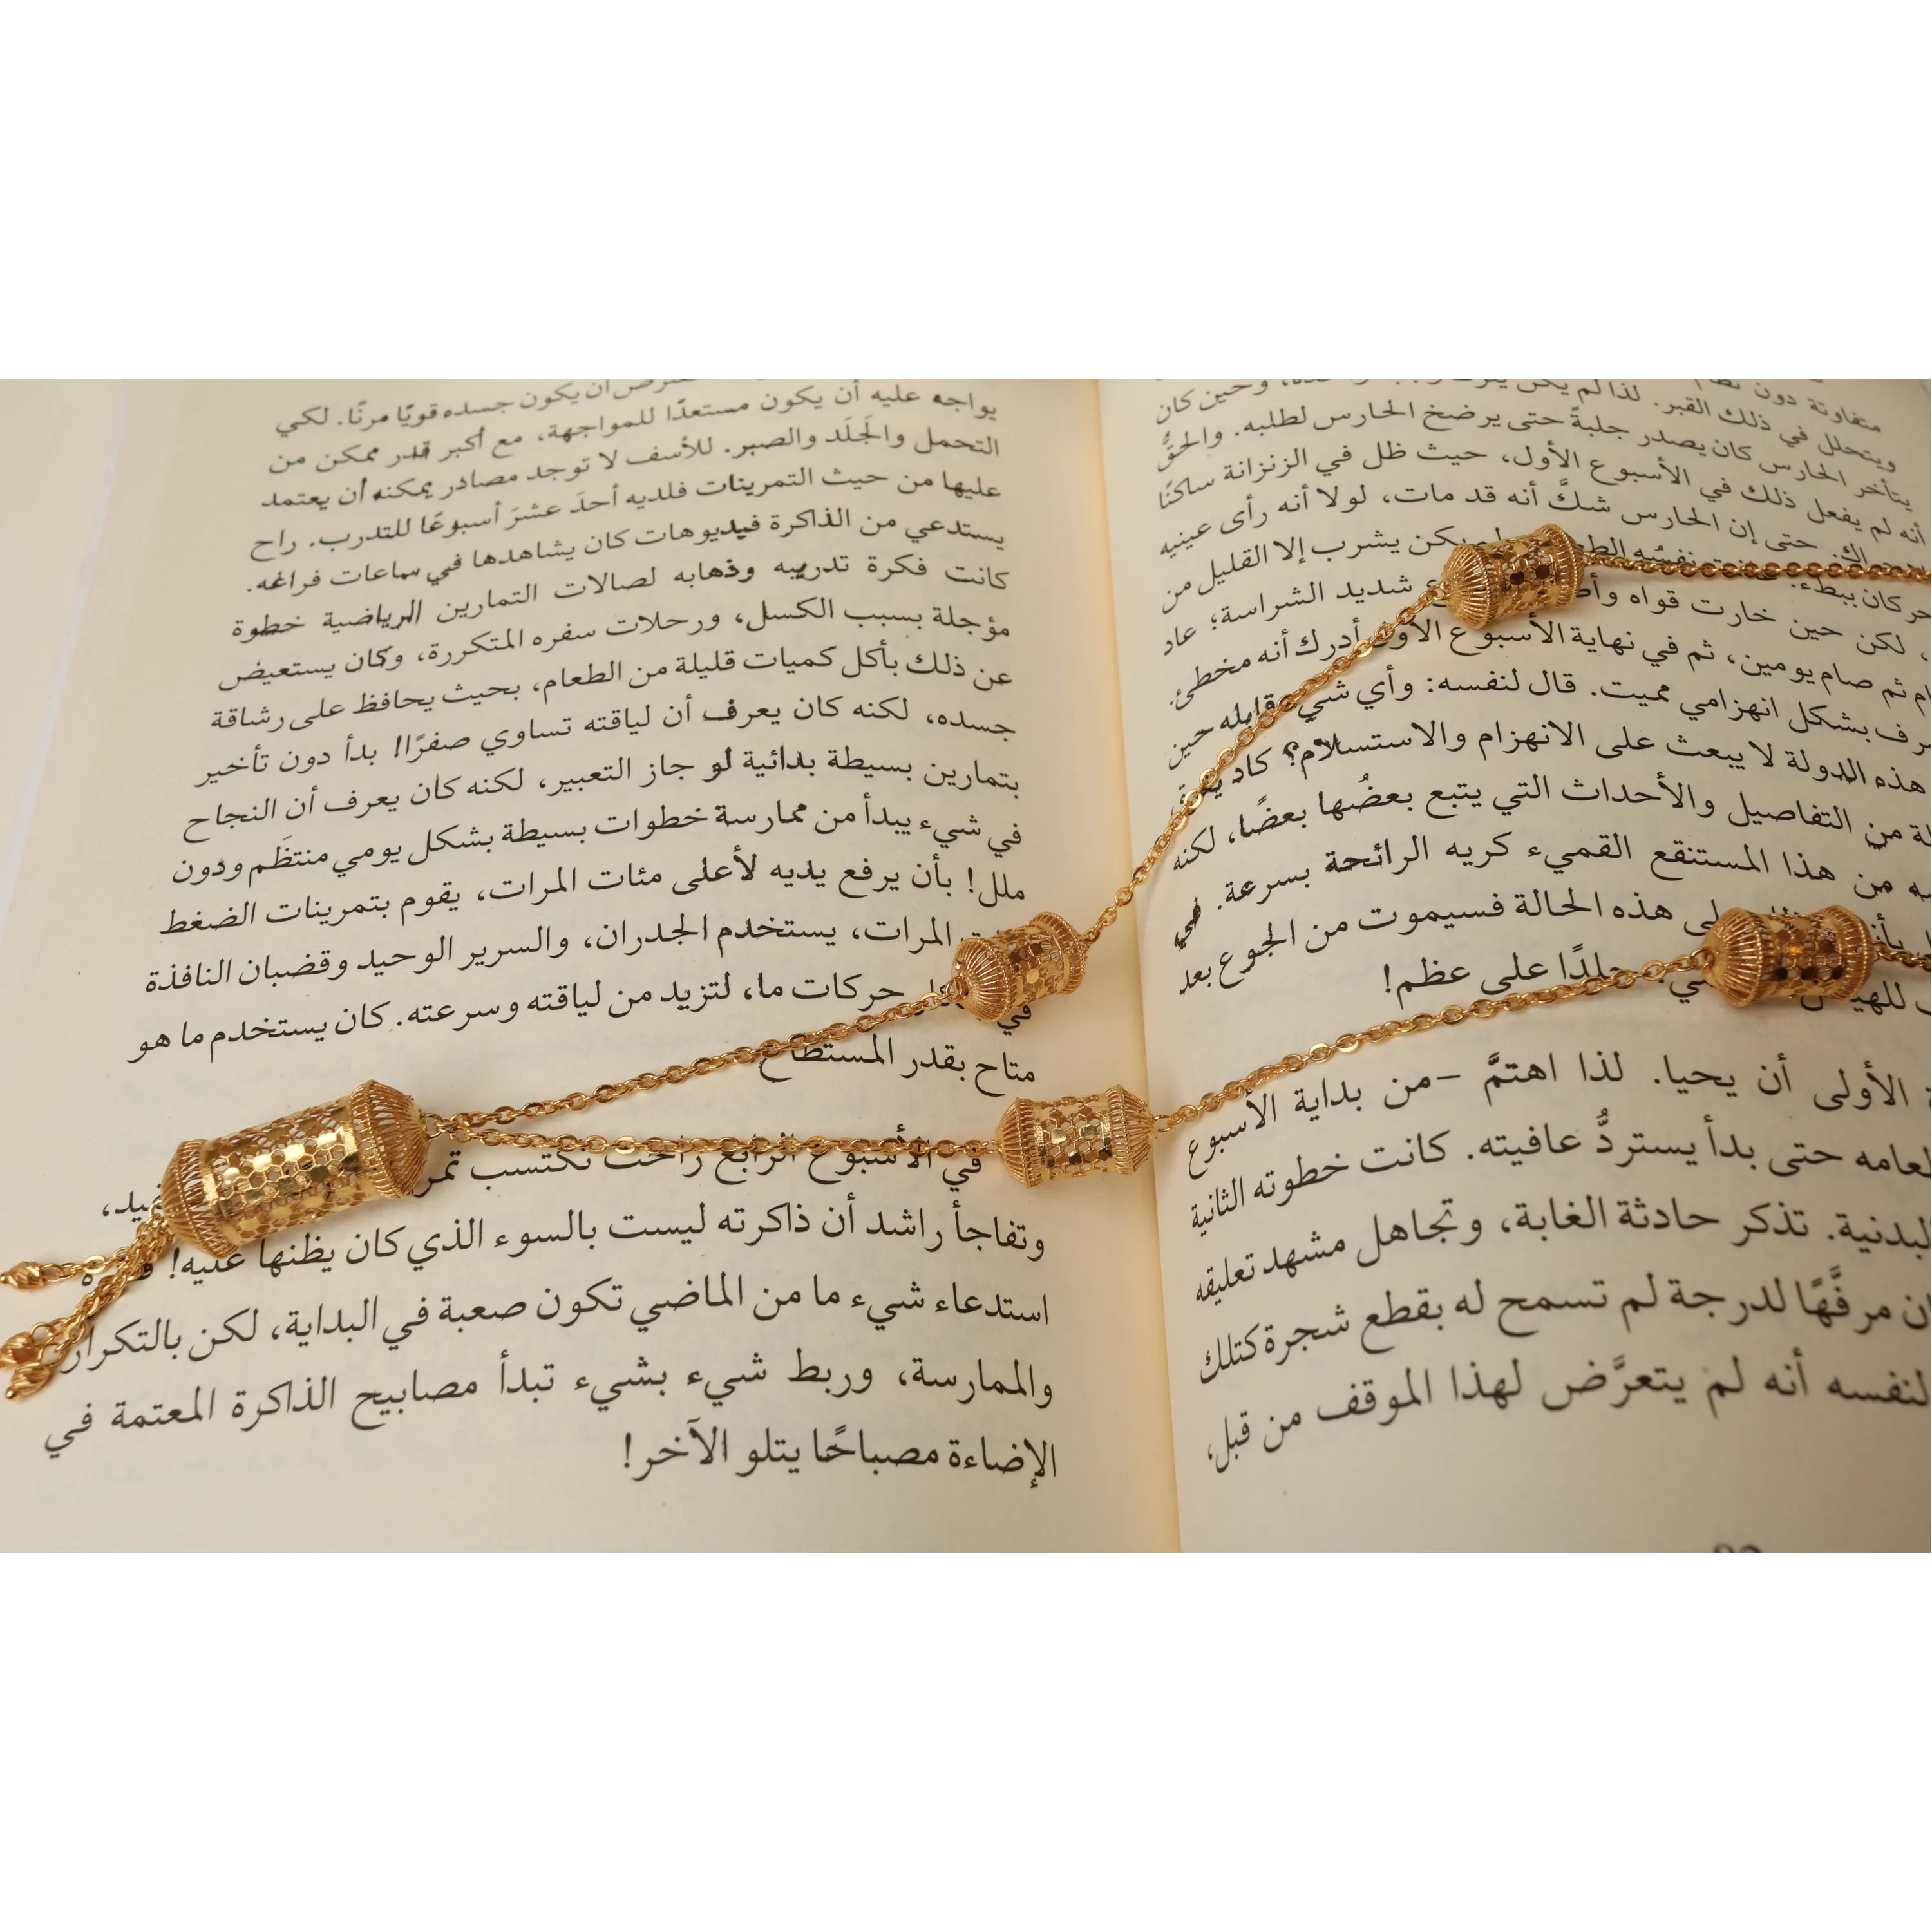 متفاوتة دون
ويتحلل في ذلك القبر. لذا لم يكن وحين كان
يتأخر الحارس كان يصدر جلبةً حتى يرضخ الحارس لطلبه. والحقُّ
أنه لم يفعل ذلك في الأسبوع الأول، حيث ظل في الزنزانة ساكنًا
حتى إن الحارس شكَّ أنه قد مات، لولا أنه رأى عينيه
ببطء. نفسُه يكن يشرب إلا القليل من
، لكن حين خارت قواه شديد الشراسة؛ عاد
ثم صام يومين، ثم في نهاية الأسبوع الأول أدرك أنه مخطئ.
بشكل انهزامي مميت. قال لنفسه: وأي شيء قابله حين
هذه الدولة لا يبعث على الانهزام والاستسلام؟ كاد
من التفاصيل والأحداث التي يتبع بعضُها بعضًا، لكنه
من هذا المستنقع القميء كريه الرائحة بسرعة. في
هذه الحالة فسيموت من الجوع بعد
جلدًا على عظم!
الأولى أن يحيا. لذا اهتمَّ –من بداية الأسبوع
حتى بدأ يستردُّ عافيته. كانت خطوته الثانية
تذكر حادثة الغابة، وتجاهل مشهد تعليقه
مرفَّهًا لدرجة لم تسمح له بقطع شجرة كتلك
لنفسه أنه لم يتعرَّض لهذا الموقف من قبل،
أن يكون جسده قويًا مرنًا. لكي
يواجه عليه أن يكون مستعدًا للمواجهة، مع أكبر قدر ممكن من
التحمل والجَلَد والصبر. للأسف لا توجد مصادر يمكنه أن يعتمد
عليها من حيث التمرينات فلديه أحدَ عشرَ أسبوعًا للتدرب. راح
يستدعي من الذاكرة فيديوهات كان يشاهدها في ساعات فراغه.
كانت فكرة تدريبه وذهابه لصالات التمارين الرياضية خطوة
مؤجلة بسبب الكسل، ورحلات سفره المتكررة، وكان يستعيض
عن ذلك بأكل كميات قليلة من الطعام، بحيث يحافظ على رشاقة
جسده، لكنه كان يعرف أن لياقته تساوي صفرًا! بدأ دون تأخير
بتمارين بسيطة بدائية لو جاز التعبير، لكنه كان يعرف أن النجاح
في شيء يبدأ من ممارسة خطوات بسيطة بشكل يومي منتظَم ودون
ملل! بأن يرفع يديه لأعلى مئات المرات، يقوم بتمرينات الضغط
المرات، يستخدم الجدران، والسرير الوحيد وقضبان النافذة
في حركات ما، لتزيد من لياقته وسرعته. كان يستخدم ما هو
متاح بقدر المستطاع
في الأسبوع الرابع راحت تكتسب
وتفاجأ راشد أن ذاكرته ليست بالسوء الذي كان يظنها عليه!
استدعاء شيء ما من الماضي تكون صعبة في البداية، لكن بالتكرار
والممارسة، وربط شيء بشيء تبدأ مصابيح الذاكرة المعتمة في
الإضاءة مصباحًا يتلو الآخر!